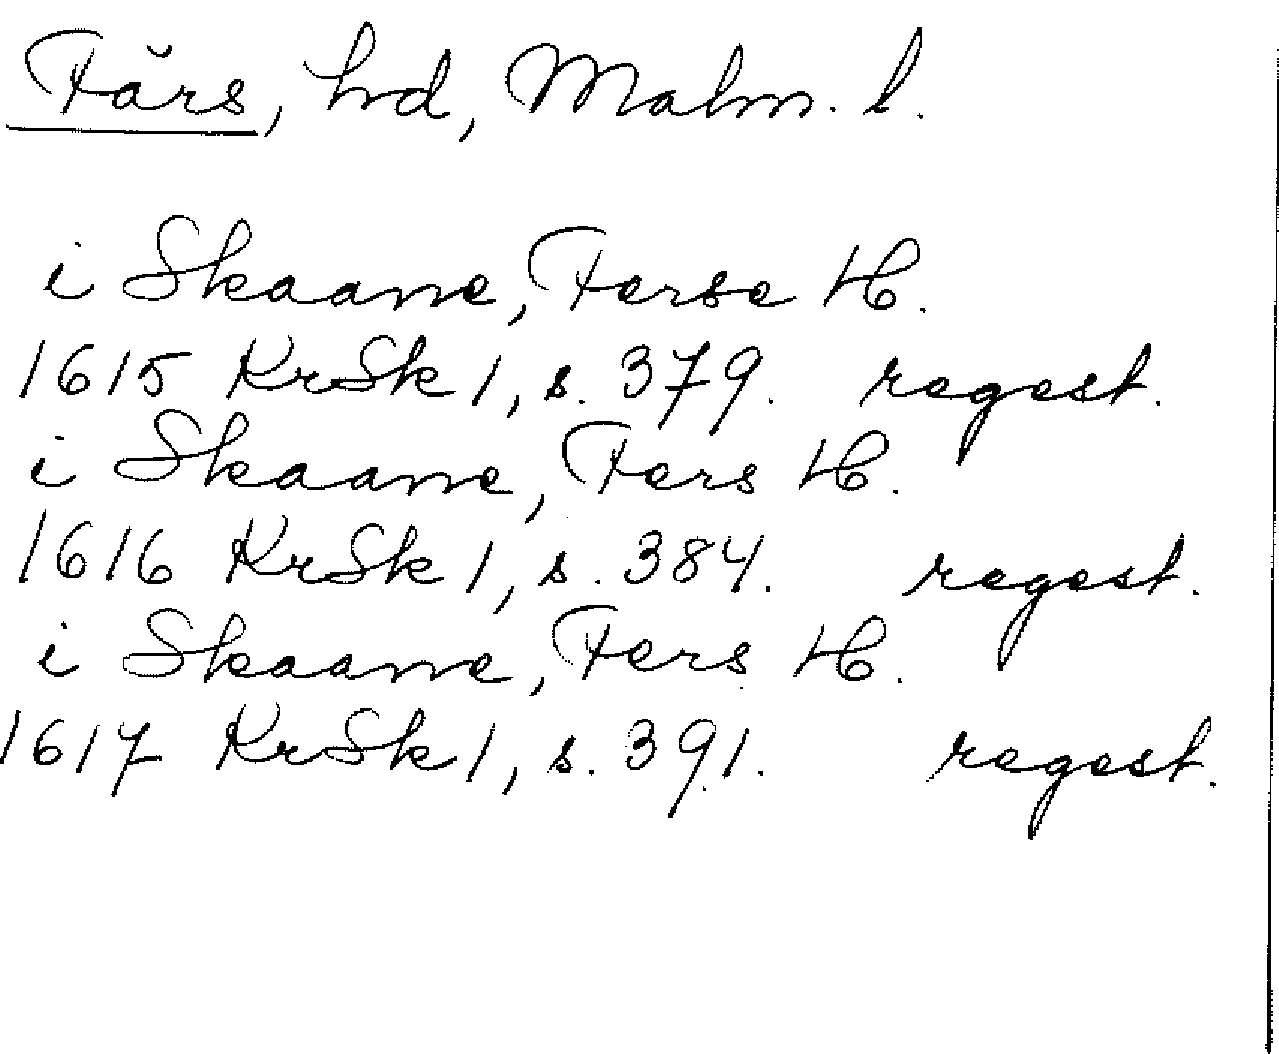 Färs, hd, Malm. l.
i Skaane, Ferse H.
1615 KrSk 1, s. 379. regest.
i Skaane, Fers H.
1616 KrSk 1, s. 384. regest.
i Skaane, Fers H.
1617 KrSk 1, s. 391. regest.